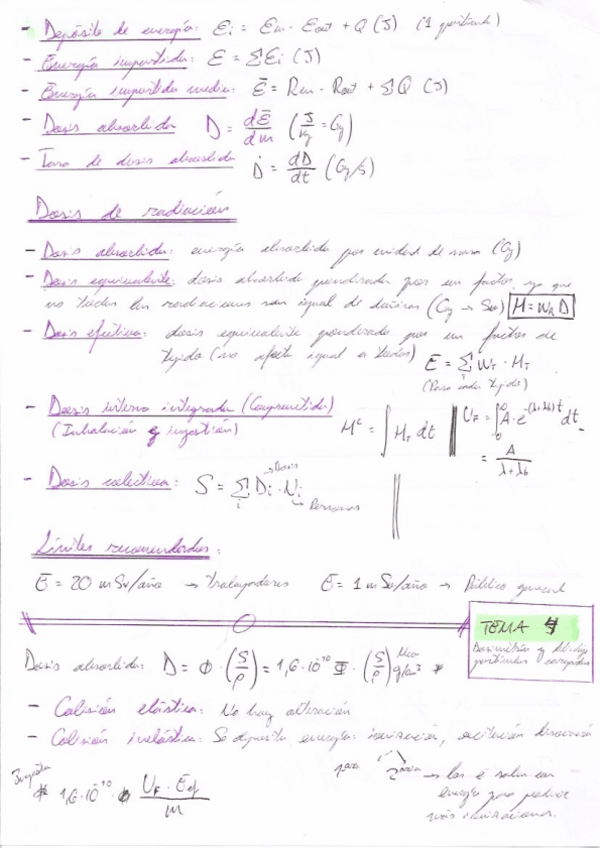 - Depósito de energía: Ei = Ein - Eout + Q (J) (1 partícula)
- Energía impartida: E = ΣEi (J)
- Energía impartida media: Ē = Rin - Rout + ΣQ (J)
- Dosis absorbida D = dĒ/dm (J/kg = Gy)
- Tasa de dosis absorbida Ḋ = dD/dt (Gy/s)
Dosis de radiación
- Dosis absorbida: energía absorbida por unidad de masa (Gy)
- Dosis equivalente: dosis absorbida ponderada por un factor, ya que
no todas las radiaciones son igual de dañinas (Gy → Sv) H = WR D
- Dosis efectiva: dosis equivalente ponderada por un factor de
tejido (no afecta igual a todos) E = Σ WT · HT
(Para cada tejido)
- Dosis interna integrada (Comprometida)
(Inhalación y ingestión) Hc = ∫ HT dt UF = ∫ A · e^-(λ+λb)t dt
= A/(λ+λb)
- Dosis colectiva: S = Σi Di · Ni
Dosis
Personas
Límites recomendados:
E = 20 mSv/año → Trabajadores E = 1 mSv/año → Público general
TEMA 4
Dosimetría
partículas cargadas
Dosis absorbida: D = Φ · (S/ρ) = 1,6·10^-10 Φ · (S/ρ) g/cm² *
- Colisión elástica: No hay alteración
- Colisión inelástica: Se deposita energía: ionización, excitación
para
→ los e⁻ salen con
energía para producir
más ionizaciones.
* 1,6·10^-10 · UF · Eef / m